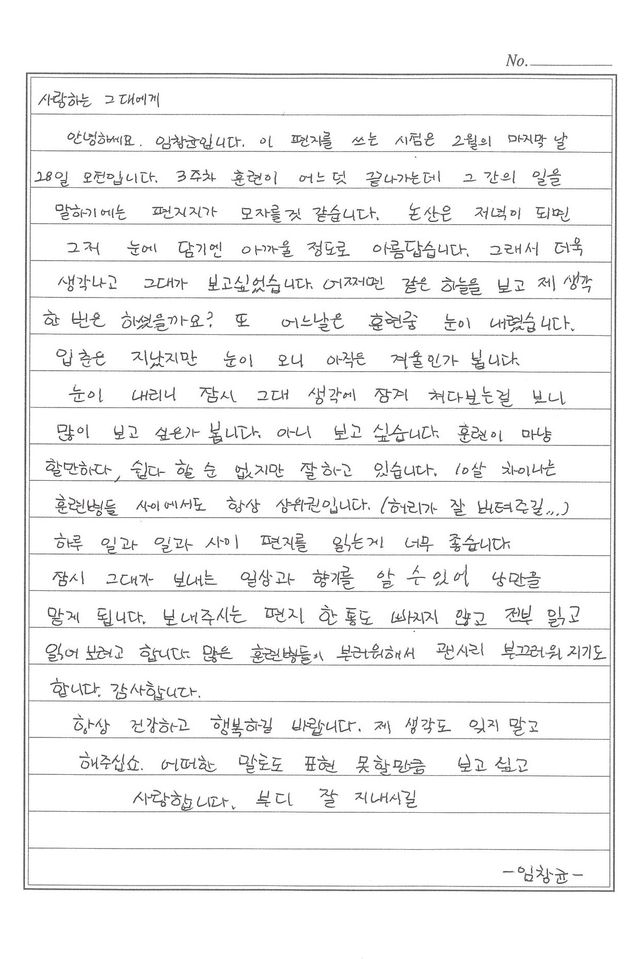 No.
사랑하는 그대에게
안녕하세요. 임창균입니다. 이 편지를 쓰는 시점은 2월의 마지막 날
28일 오전입니다. 3주차 훈련이 어느덧 끝나가는데 그 간의 일을
말하기에는 편지지가 모자를것 같습니다. 논산은 저녁이 되면
그저 눈에 담기엔 아까울 정도로 아름답습니다. 그래서 더욱
생각나고 그대가 보고싶었습니다. 어쩌면 같은 하늘을 보고 제 생각
한 번은 하셨을까요? 또 어느날은 훈련중 눈이 내렸습니다.
입춘은 지났지만 눈이 오니 아직은 겨울인가 봅니다.
눈이 내리니 잠시 그대 생각에 잠겨 쳐다보는걸 보니
많이 보고 싶은가 봅니다. 아니 보고 싶습니다. 훈련이 마냥
할만하다, 쉽다 할 순 없지만 잘하고 있습니다. 10살 차이나는
훈련병들 사이에서도 항상 상위권입니다. (허리가 잘 버텨주길...)
하루 일과 일과 사이 편지를 읽는게 너무 좋습니다
잠시 그대가 보내는 일상과 향기를 알 수 있어 낭만을
맡게 됩니다. 보내주시는 편지 한 통도 빠지지 않고 전부 읽고
읽어 보려고 합니다. 많은 훈련병들이 부러워해서 괜시리 부끄러워 지기도
합니다. 감사합니다.
항상 건강하고 행복하길 바랍니다. 제 생각도 잊지 말고
해주십쇼. 어떠한 말로도 표현 못할만큼 보고 싶고
사랑합니다. 부디 잘 지내시길
-임창균-